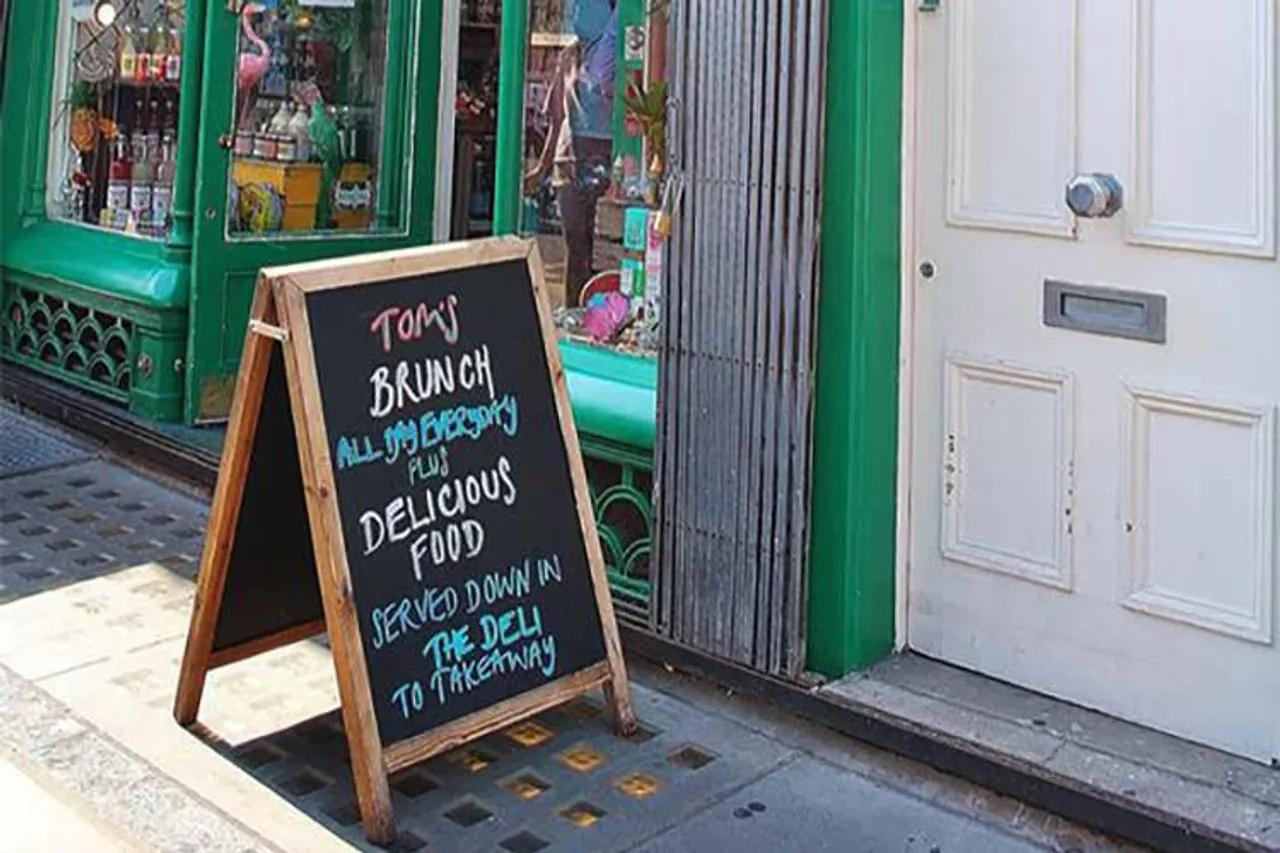 TOM'S
BRUNCH
ALL DAY EVERYDAY
PLUS
DELICIOUS
FOOD
SERVED DOWN IN
THE DELI
TO TAKEAWAY